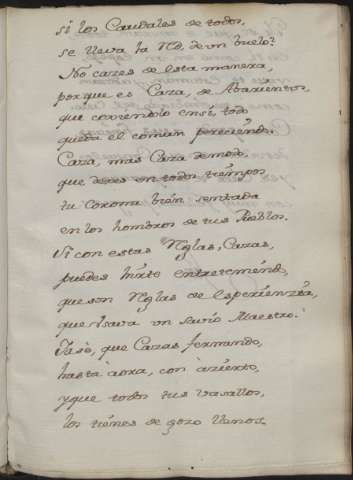 si los Caudales de todos,
se lleva la Rl. de un buelo?
No cazes de esta manera,
porque es Caza, de Abarientos,
que corriendolo ensi todo
queda el comun pereciendo.
Caza, mas Caza de modo,
que dexes en todos tiempos
tu Corona bien sentada
en los hombros de tus Pueblos.
Si con estas Reglas, Cazas,
puedes irte entreteniendo,
que son Reglas de esperienzia,
que usava un savio Maestro.
Paso, que Cazas fernando,
hasta aora, con acierto,
y que todos tus vasallos,
los tienes de gozo llenos.